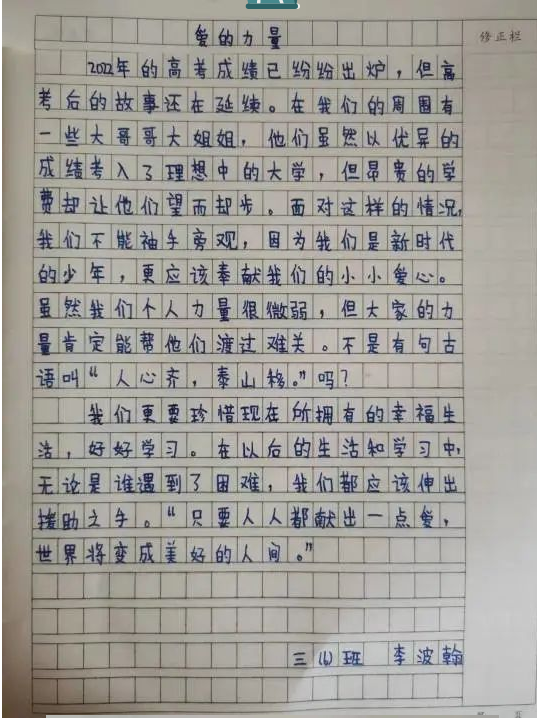 修正栏
爱的力量
2022年的高考成绩已纷纷出炉，但高
考后的故事还在延续。在我们的周围有
一些大哥哥大姐姐，他们虽然以优异的
成绩考入了理想中的大学，但昂贵的学
费却让他们望而却步。面对这样的情况，
我们不能袖手旁观，因为我们是新时代
的少年，更应该奉献我们的小小爱心。
虽然我们个人力量很微弱，但大家的力
量肯定能帮他们渡过难关。不是有句古
语叫“人心齐，泰山移。”吗？
我们更要珍惜现在所拥有的幸福生
活，好好学习。在以后的生活和学习中，
无论是谁遇到了困难，我们都应该伸出
援助之手。“只要人人都献出一点爱，
世界将变成美好的人间。”
三（6）班 李波翰